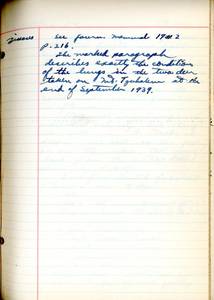 Diseases
See Journ. Mammal 19 no 2
p. 216.
The marked paragraph
describes exactly the condition
of the lungs in the two deer
taken on Mt. Tzuhalem at the
end of September 1939.